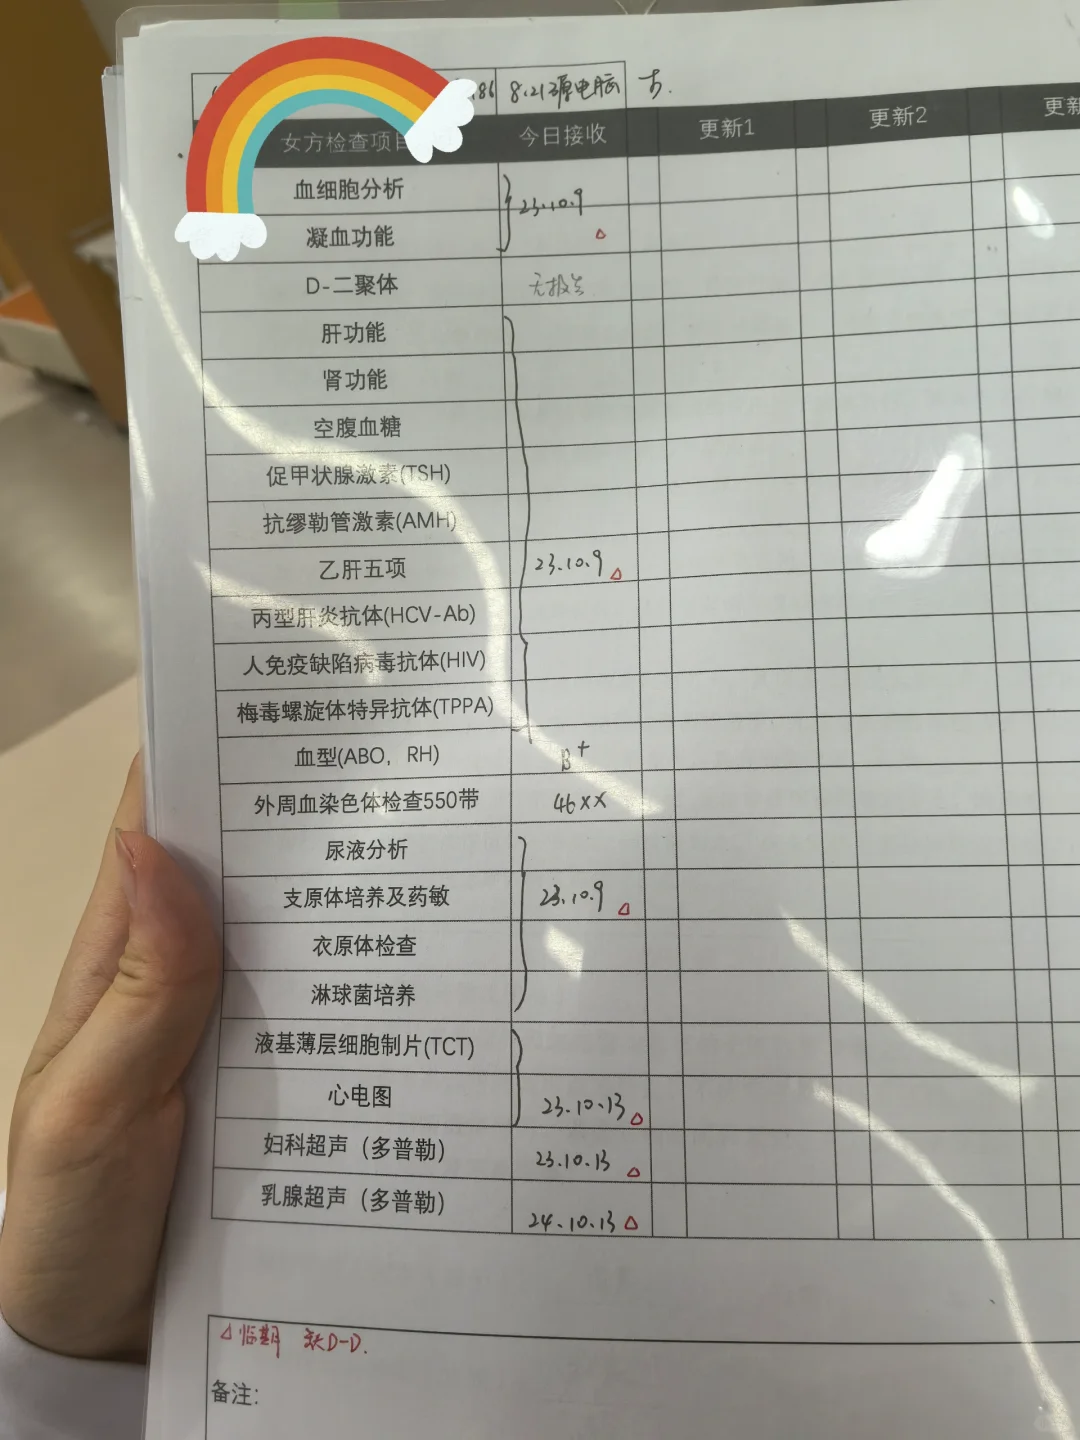 86 8.21 电脑
女方检查项 今日接收 更新1 更新2 更新
血细胞分析
23.10.9
凝血功能 △
D-二聚体 无报告
肝功能
肾功能
空腹血糖
促甲状腺激素(TSH)
抗缪勒管激素(AMH)
乙肝五项 23.10.9 △
丙型肝炎抗体(HCV-Ab)
人免疫缺陷病毒抗体(HIV)
梅毒螺旋体特异抗体(TPPA)
血型(ABO，RH) B+
外周血染色体检查550带 46XX
尿液分析
支原体培养及药敏 23.10.9 △
衣原体检查
淋球菌培养
液基薄层细胞制片(TCT)
心电图 23.10.13 △
妇科超声（多普勒） 23.10.13 △
乳腺超声（多普勒） 24.10.13 △
△临期 缺D-D.
备注: